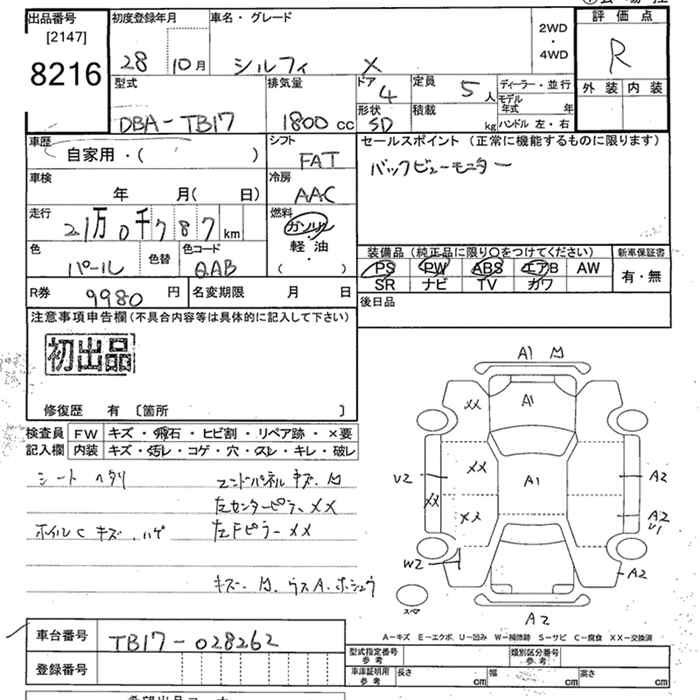 出品番号 初度登録年月 車名・グレード 評価点
[2147]
8216
28 10月 シルフィ X 2WD・4WD R
型式 排気量 ドア 4 定員 5人 ディーラー・並行 外装 内装
DBA-TB17 1800cc 形状 SD 積載 kg モデル年式 年 ハンドル 左・右
車歴 シフト セールスポイント(正常に機能するものに限ります)
自家用・( ) FAT バックビューモニター
車検 冷房
年 月( 日) AAC
走行 燃料
21万0千787km ガソリン
軽・油
( )
色 色替 色コード 装備品(純正品に限り〇をつけてください) 新車保証書
パール QAB PS PW ABS エアB AW 有・無
SR ナビ TV カワ
R券 9980円 名変期限 月 日 後日品
注意事項申告欄(不具合内容等は具体的に記入して下さい)
初出品
修復歴 有 〔箇所 〕
検査員 FW キズ・飛石・ヒビ割・リペア跡・×要
記入欄 内装 キズ・汚レ・コゲ・穴・スレ・キレ・破レ
シート ヘタリ エンドパネル キズ、凹
左センターピラー XX
ホイルC キズ、ハゲ 左Fピラー XX
キズ、凹、ウスA、ホシュウ
A1 凹
XX A1
XX A1 A2
U2
XX
XX A2
U1
W2 A2
スペア
A2
A-キズ E-エクボ U-凹み W-補修跡 S-サビ C-腐食 XX-交換済
車台番号 TB17-028262
型式指定番号 参考 類別区分番号 参考
登録番号 車庫証明用 参考 長さ cm 幅 cm 高さ cm